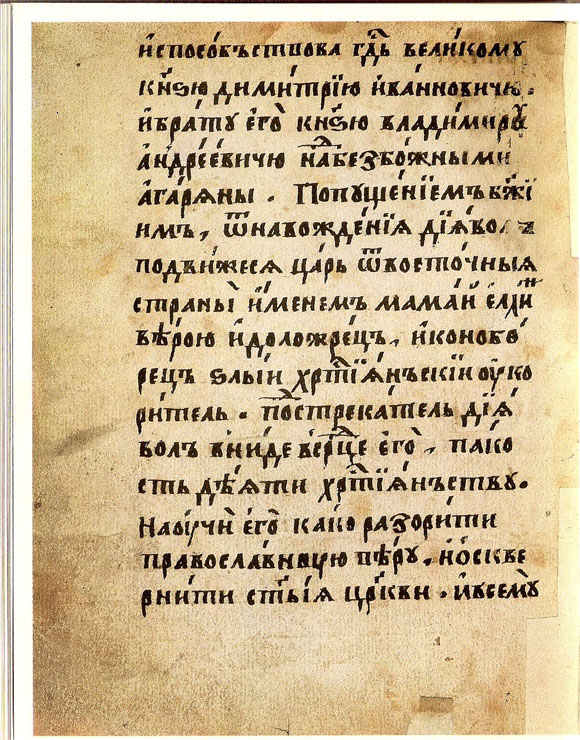 и҆спосо́бъствова гдⷭ҇ь вели́кому
кнѕ҃ю дими́трїю и҆ва́нновичю.
и҆бра́ту є҆гѡ̀ кнѕ҃ю влади́миру
а҆ндре́евичю наⷣбезбо́жными
а҆гаря́ны. Попуще́нїемъ бж҃ї
имъ, ѿнавожде́нїѧ дїѧ́вола
подви́жесѧ ца́рь ѿвосто́чныѧ
страны̀ и҆́менемъ мама́й є҆́лли
вѣ́рою и҆доложе́рецъ, и҆конобо́
рецъ ѕлы́й хрⷭ҇тїѧ́нъскїй оу҆ко
ри́тель. поⷣстрека́тель дїѧ́
волъ вни́де всрⷣце є҆гѡ̀, па́ко
сть дѣ́ѧти хрⷭ҇тїѧ́нъству.
Наоучѝ є҆гѡ̀ ка́ко разори́ти
правосла́вную вѣ́ру. и҆ѡ҆скве
рни́ти ст҃ы́ѧ цр҃кви. и҆всемꙋ̀